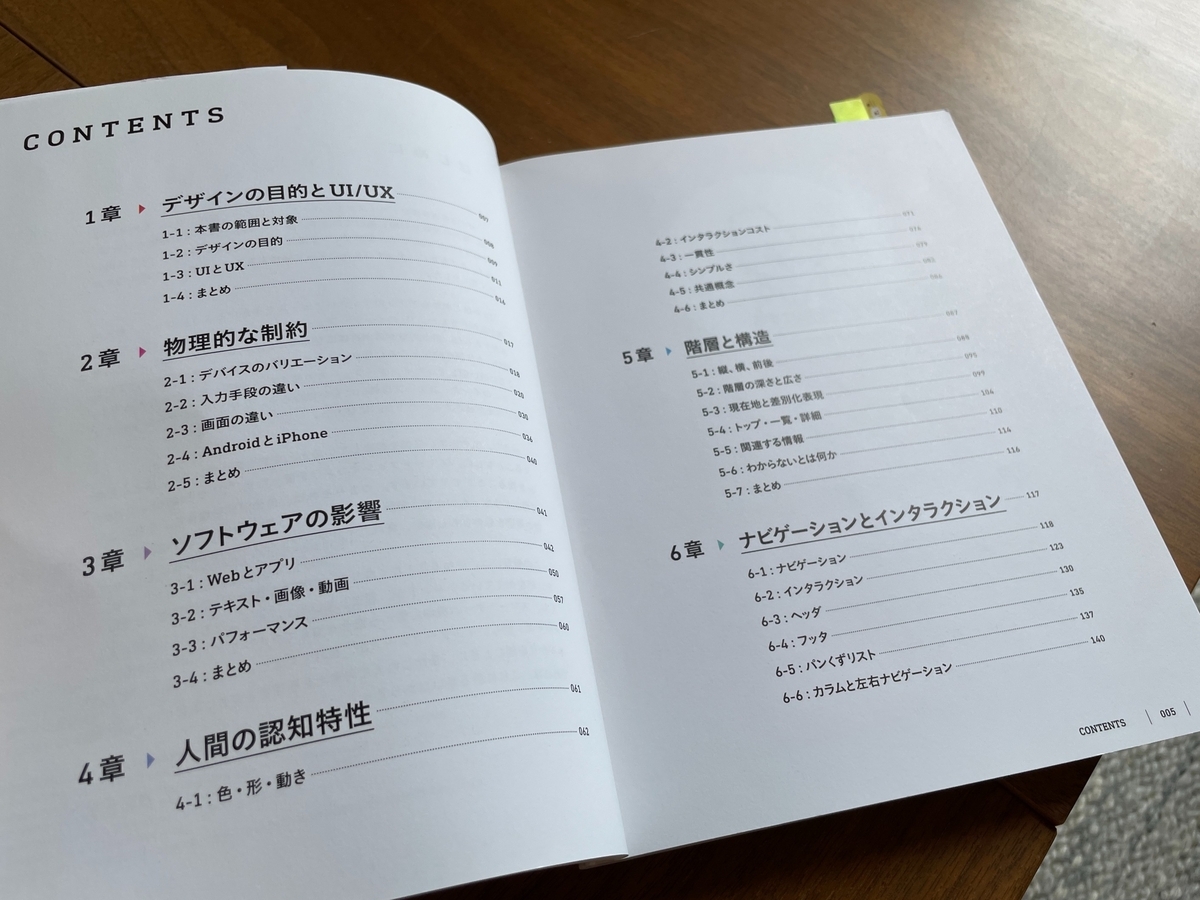 CONTENTS
1章 デザインの目的と UI/UX 007
1-1：本書の範囲と対象 008
1-2：デザインの目的 009
1-3：UIとUX 013
1-4：まとめ 016
2章 物理的な制約 017
2-1：デバイスのバリエーション 018
2-2：入力手段の違い 026
2-3：画面の違い 030
2-4：AndroidとiPhone 036
2-5：まとめ 040
3章 ソフトウェアの影響 041
3-1：Webとアプリ 042
3-2：テキスト・画像・動画 050
3-3：パフォーマンス 057
3-4：まとめ 060
4章 人間の認知特性 061
4-1：色・形・動き 062
4-2：インタラクションコスト 071
4-3：一貫性
4-4：シンプルさ 079
4-5：共通概念
4-6：まとめ
5章 階層と構造 087
5-1：縦、横、前後 088
5-2：階層の深さと広さ 095
5-3：現在地と差別化表現 099
5-4：トップ・一覧・詳細 106
5-5：関連する情報 110
5-6：わからないとは何か 114
5-7：まとめ 116
6章 ナビゲーションとインタラクション 117
6-1：ナビゲーション 118
6-2：インタラクション 123
6-3：ヘッダ 130
6-4：フッタ 135
6-5：パンくずリスト 137
6-6：カラムと左右ナビゲーション 140
CONTENTS | 005 |